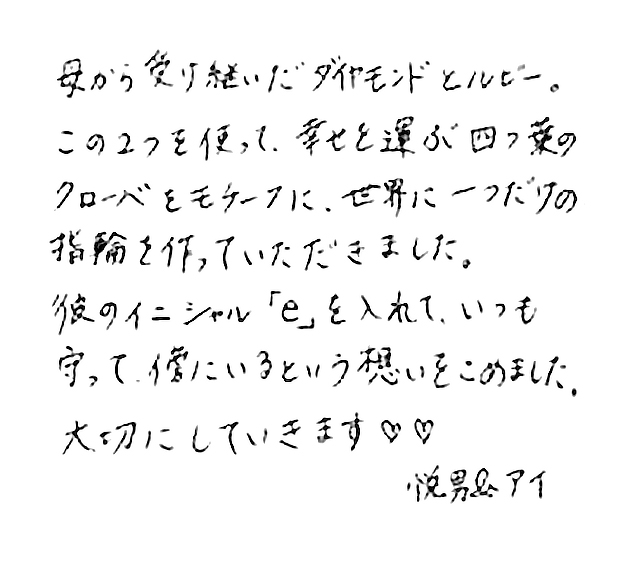 母から受け継いだダイヤモンドとルビー。
この2つを使って、幸せを運ぶ四つ葉の
クローバーをモチーフに、世界に一つだけの
指輪を作っていただきました。
彼のイニシャル「e」を入れて、いつも
守って、傍にいるという想いをこめました。
大切にしていきます♡♡
悦男&アイ